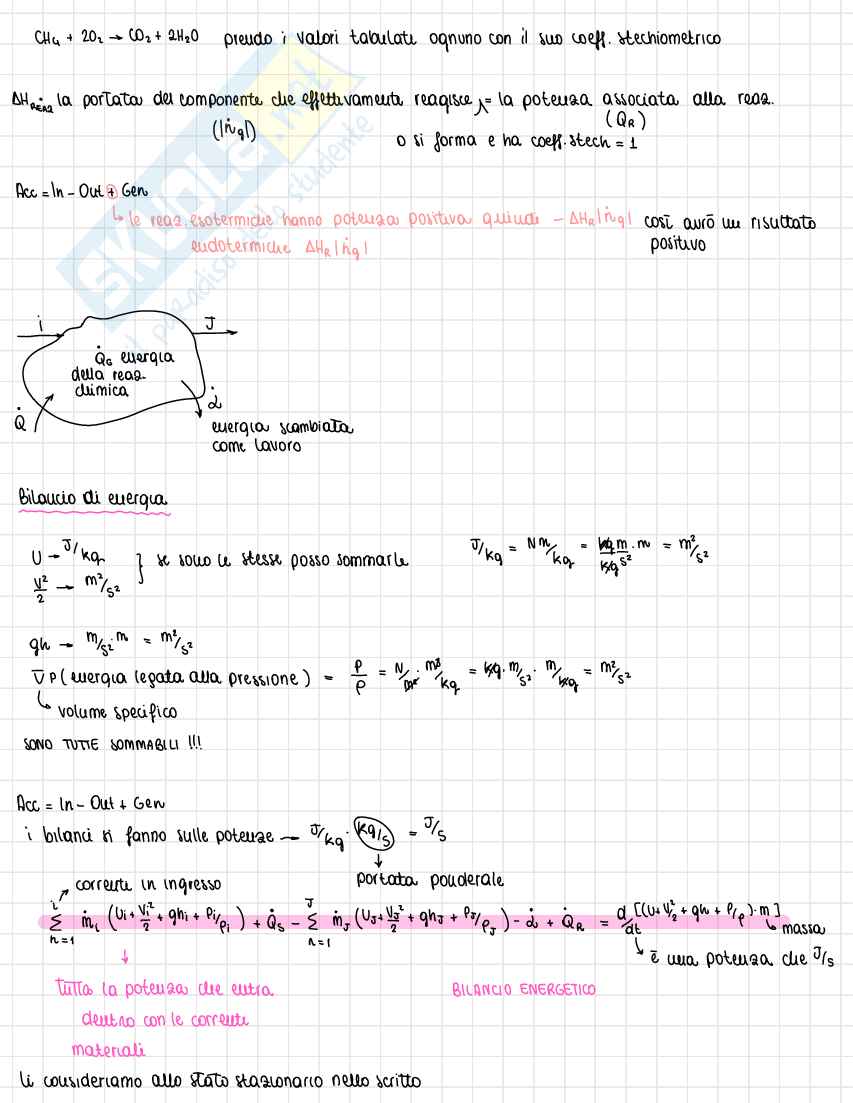 CH₄ + 2O₂ → CO₂ + 2H₂O prendo i valori tabulati ognuno con il suo coeff. stechiometrico
ΔH_REAZ · la portata del componente che effettivamente reagisce = la potenza associata alla reaz.
(|ṅg|) o si forma e ha coeff. stech = 1 (Q̇R)
Acc = In - Out + Gen
↳ le reaz. esotermiche hanno potenza positiva quindi - ΔHR|ṅg| così avrò un risultato
endotermiche ΔHR|ṅg| positivo
SKUOLA.net
il paradiso dello studente
i J
Q̇G energia
della reaz.
chimica
Q̇ L̇
energia scambiata
come lavoro
Bilancio di energia
U → J/kg
V²/2 → m²/s²
} se sono le stesse posso sommarle
J/kg = Nm/kg = kg m/kg s² · m = m²/s²
gh → m/s² · m = m²/s²
V̄P (energia legata alla pressione) = P/ρ = N/m² · m³/kg = kg · m/s² · m/kg = m²/s²
↳ volume specifico
SONO TUTTE SOMMABILI !!!
Acc = In - Out + Gen
i bilanci si fanno sulle potenze → J/kg · kg/s = J/s
↓
portata ponderale
↗ corrente in ingresso
∑ⁱₙ₌₁ ṁi (Ui + Vi²/2 + ghi + Pi/ρi) + Q̇S - ∑ᴶₙ₌₁ ṁJ (UJ + VJ²/2 + ghJ + PJ/ρJ) - L̇ + Q̇R = d/dt [(U + V²/2 + gh + P/ρ) · m]
↳ massa
↳ è una potenza che J/s
↓
tutta la potenza che entra
dentro con le correnti
materiali
BILANCIO ENERGETICO
li consideriamo allo stato stazionario nello scritto